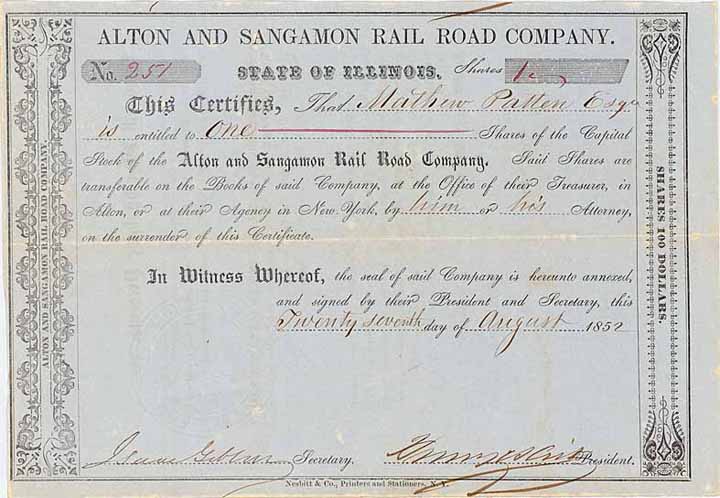 ALTON AND SANGAMON RAIL ROAD COMPANY.
No. 251 STATE OF ILLINOIS. Shares
This Certifies, That Mathew Patten Esqr
is entitled to one Shares of the Capital
Stock of the Alton and Sangamon Rail Road Company. Said Shares are
transferable on the Books of said Company, at the Office of their Treasurer, in
Alton, or at their Agency in New York, by him or his Attorney,
on the surrender of this Certificate.
In Witness Whereof, the seal of said Company is hereunto annexed,
and signed by their President and Secretary, this
Twenty seventh day of August 1852
Secretary. President.
Nesbitt & Co., Printers and Stationers, N. Y.
ALTON AND SANGAMON RAIL ROAD COMPANY.
SHARES 100 DOLLARS.